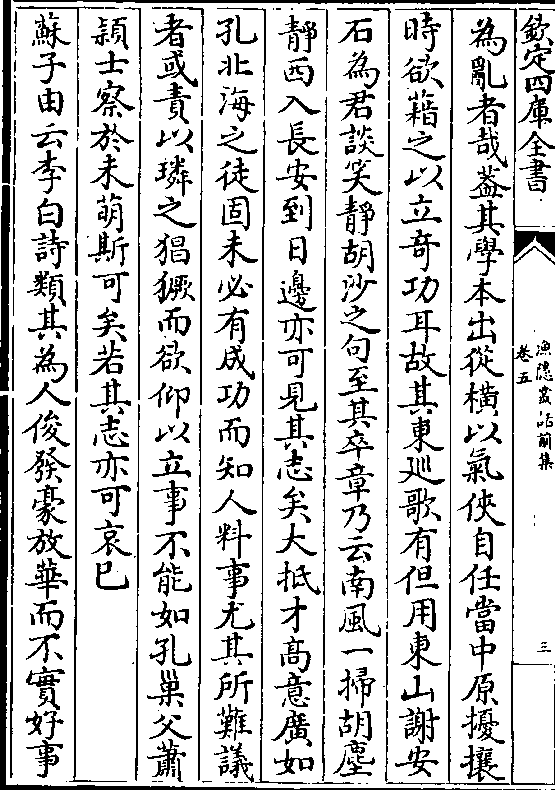 欽定四庫全書
漁隱叢話前集
卷五
三
為亂者哉葢其學本出從横以氣俠自任當中原擾攘
時欲藉之以立奇功耳故其東廵歌有但用東山謝安
石為君談笑静胡沙之句至其卒章乃云南風一掃胡塵
静西入長安到日邊亦可見其志矣大抵才髙意廣如
孔北海之徒固未必有成功而知人料事尤其所難議
者或責以璘之猖獗而欲仰以立事不能如孔巢父蕭
頴士察於未萌斯可矣若其志亦可哀已
蘇子由云李白詩類其為人俊發豪放華而不實好事